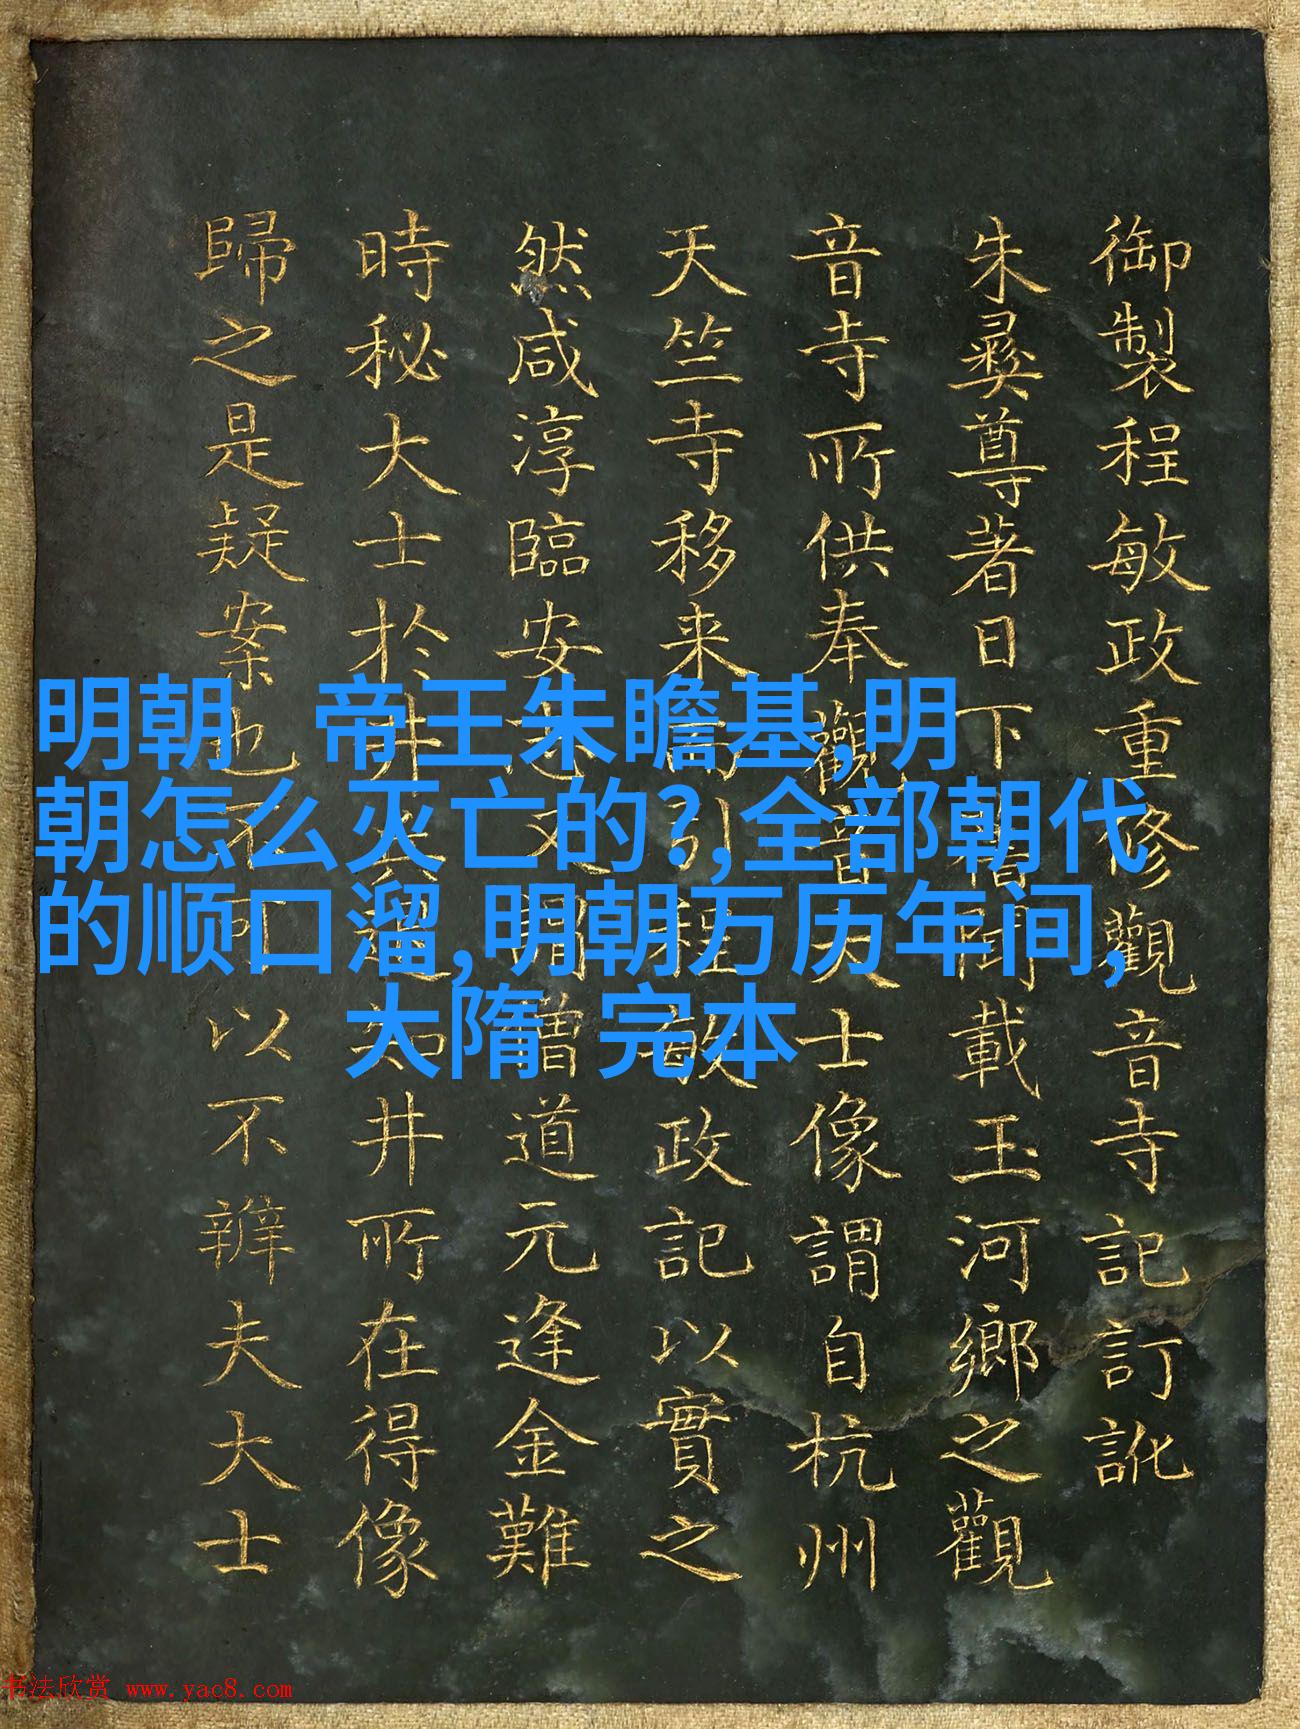 御製程敏政重修觀音寺記訂訛
朱彛尊著日下舊聞載玉河鄉之觀
音寺所供奉觀音大士像謂自杭州
天竺寺移来而引程敏政記以實之
然咸淳臨安志又聞僧道元逢金難
時秘大士於井兵退知井所在得像
歸之是疑案也不可以不辨夫大士
明朝 帝王朱瞻基,明
朝怎么灭亡的?,全部朝代
的顺口溜,明朝万历年间,
大隋 完本
书法欣赏 www.yac8.com